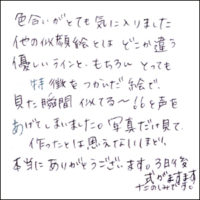 色合いがとても気に入りました
他の似顔絵とは どこか違う
優しいラインと、もちろん とっても
特徴をつかいだ絵で、
見た瞬間 似てる〜!!と声を
あげてしまいました。写真だけ見て、
作ったとは思えないほど!
本当にありがとうございます。3日後
式がますます
たのしみです。